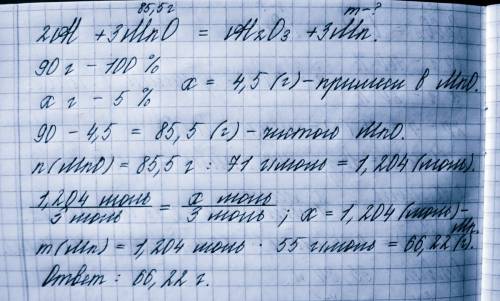 85,5 г m-?
2Al + 3MnO = Al2O3 + 3Mn.
90 г – 100 %
x г – 5 % x = 4,5 (г) – примеси в MnO.
90 – 4,5 = 85,5 (г) – чистого MnO.
n(MnO) = 85,5 г : 71 г/моль = 1,204 (моль).
1,204 моль / 3 моль = x моль / 3 моль ; x = 1,204 (моль) – Mn.
m(Mn) = 1,204 моль · 55 г/моль = 66,22 (г).
Ответ : 66,22 г.